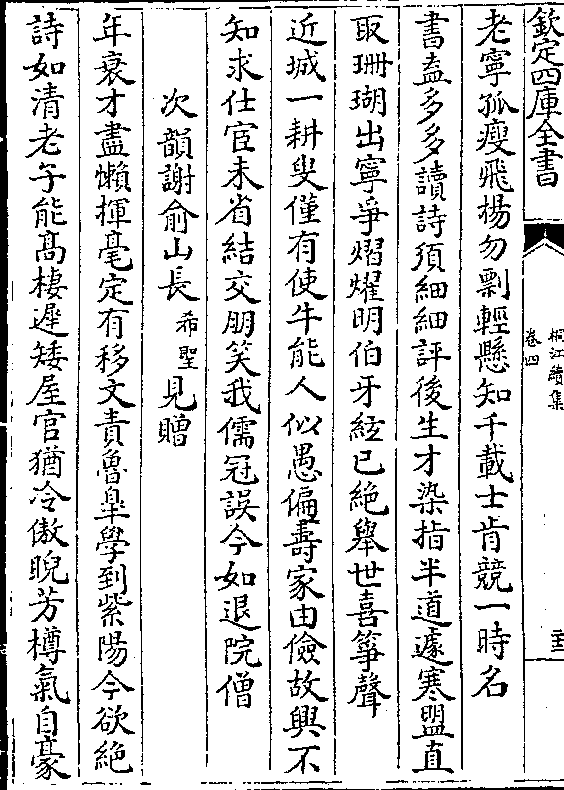 欽定四庫全書
桐江續集
卷四
老寧孤瘦飛揚勿剽輕懸知千載士肯競一時名
書盍多多讀詩須細細評後生才染指半道遽寒盟直
取珊瑚出寧爭熠燿明伯牙絃已絶舉世喜箏聲
近城一耕叟僅有使牛能人似愚偏壽家由儉故興不
知求仕宦未省結交朋笑我儒冠誤今如退院僧
次韻謝俞山長希聖見贈
年衰才盡懶揮毫定有移文責魯臯學到紫陽今欲絶
詩如清老乍能髙棲遲矮屋官猶冷傲睨芳樽氣自豪